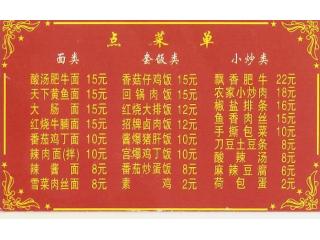 点菜单
面类 套饭类 小炒类
酸汤肥牛面 15元 香菇仔鸡饭 12元 飘香肥牛 22元
天下黄鱼面 15元 回锅肉饭 12元 农家小炒肉 18元
大肠面 15元 红烧大排饭 12元 椒盐排条 16元
红烧牛腩面 10元 招牌卤肉饭 12元 鱼香肉丝 15元
番茄鸡丁面 10元 酱爆猪肝饭 10元 手撕包菜 10元
辣肉面(拌) 10元 宫爆鸡丁饭 10元 刀豆土豆条 8元
辣酱面 8元 番茄炒蛋饭 8元 酸辣汤 8元
雪菜肉丝面 8元 素鸡 2元 麻辣豆腐 6元
荷包蛋 2元